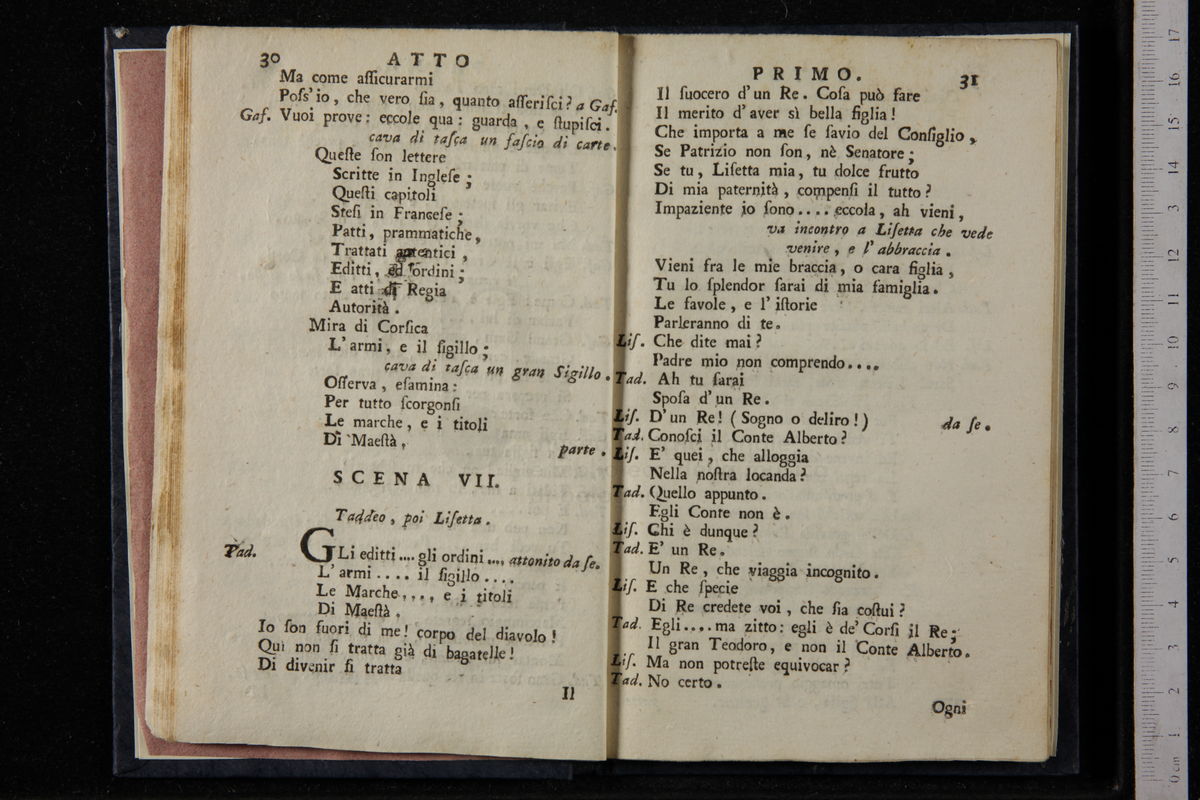 30 ATTO
Ma come aſſicurarmi
Poſs'io, che vero ſia, quanto aſſeriſci? a Gaf.
Gaf. Vuoi prove: eccole qua: guarda, e ſtupiſci.
cava di taſca un faſcio di carte.
Queſte ſon lettere
Scritte in Ingleſe;
Queſti capitoli
Steſi in Franceſe;
Patti, prammatiche,
Trattati autentici,
Editti, ed ordini;
E atti di Regia
Autorità.
Mira di Corſica
L'armi, e il ſigillo;
cava di taſca un gran Sigillo.
Oſſerva, eſamina:
Per tutto ſcorgonſi
Le marche, e i titoli
Di Maeſtà.
parte.
SCENA VII.
Taddeo, poi Liſetta.
Tad. GLi editti.... gli ordini.... attonito da ſe.
L'armi.... il ſigillo....
Le Marche.... e i titoli
Di Maeſtà.
Io ſon fuori di me! corpo del diavolo!
Qui non ſi tratta già di bagatelle!
Di divenir ſi tratta
Il
PRIMO. 31
Il ſuocero d'un Re. Coſa può fare
Il merito d'aver sì bella figlia!
Che importa a me ſe ſavio del Conſiglio,
Se Patrizio non ſon, nè Senatore;
Se tu, Liſetta mia, tu dolce frutto
Di mia paternità, compenſi il tutto?
Impaziente io ſono.... eccola, ah vieni,
va incontro a Liſetta che vede
venire, e l'abbraccia.
Vieni fra le mie braccia, o cara figlia,
Tu lo ſplendor ſarai di mia famiglia.
Le favole, e l'iſtorie
Parleranno di te.
Liſ. Che dite mai?
Padre mio non comprendo....
Tad. Ah tu ſarai
Spoſa d'un Re.
Liſ. D'un Re! (Sogno o deliro!) da ſe.
Tad. Conoſci il Conte Alberto?
Liſ. E' quei, che alloggia
Nella noſtra locanda?
Tad. Quello appunto.
Egli Conte non è.
Liſ. Chi è dunque?
Tad. E' un Re.
Un Re, che viaggia incognito.
Liſ. E che ſpecie
Di Re credete voi, che ſia coſtui?
Tad. Egli.... ma zitto: egli è de' Corſi il Re;
Il gran Teodoro, e non il Conte Alberto.
Liſ. Ma non potreſte equivocar?
Tad. No certo.
Ogni
0 cm 1 2 3 4 5 6 7 8 9 10 11 12 13 14 15 16 17